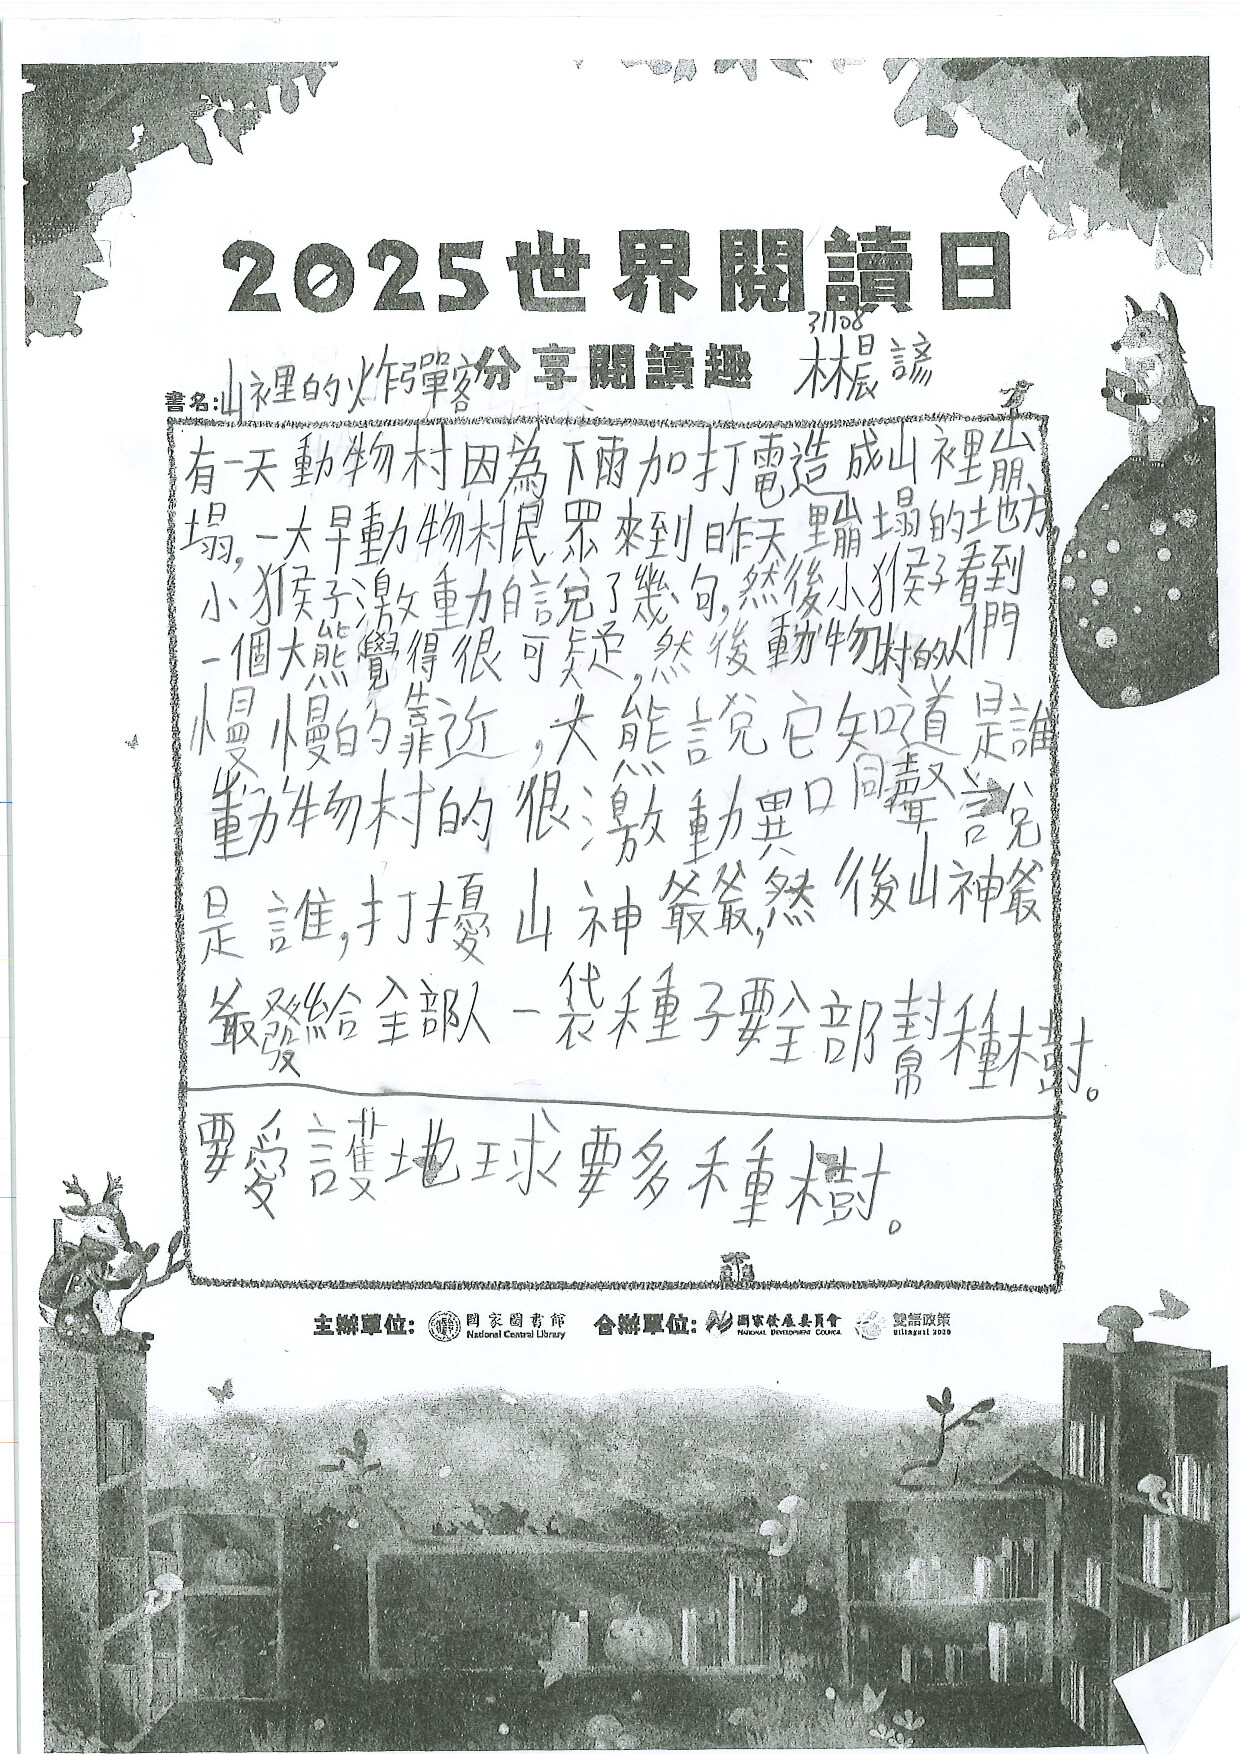 2025世界閱讀日
31108
分享閱讀趣 林晨諺
書名:山裡的炸彈客
有一天動物村因為下雨加打電造成山裡崩
塌。一大早動物村民眾來到昨天崩塌的地方,
小猴子激動的說了幾句,然後小猴子看到
一個大熊覺得很可疑,然後動物村的人們
慢慢的靠近,大熊說它知道是誰
動物村的很激動異口同聲說
是誰,打擾山神爺爺,然後山神爺
爺發給全部人一袋種子要全部幫種樹。
要愛護地球要多種樹。
主辦單位: 國家圖書館 National Central Library 合辦單位: 國家發展委員會 NATIONAL DEVELOPMENT COUNCIL 雙語政策 Bilingual 2030